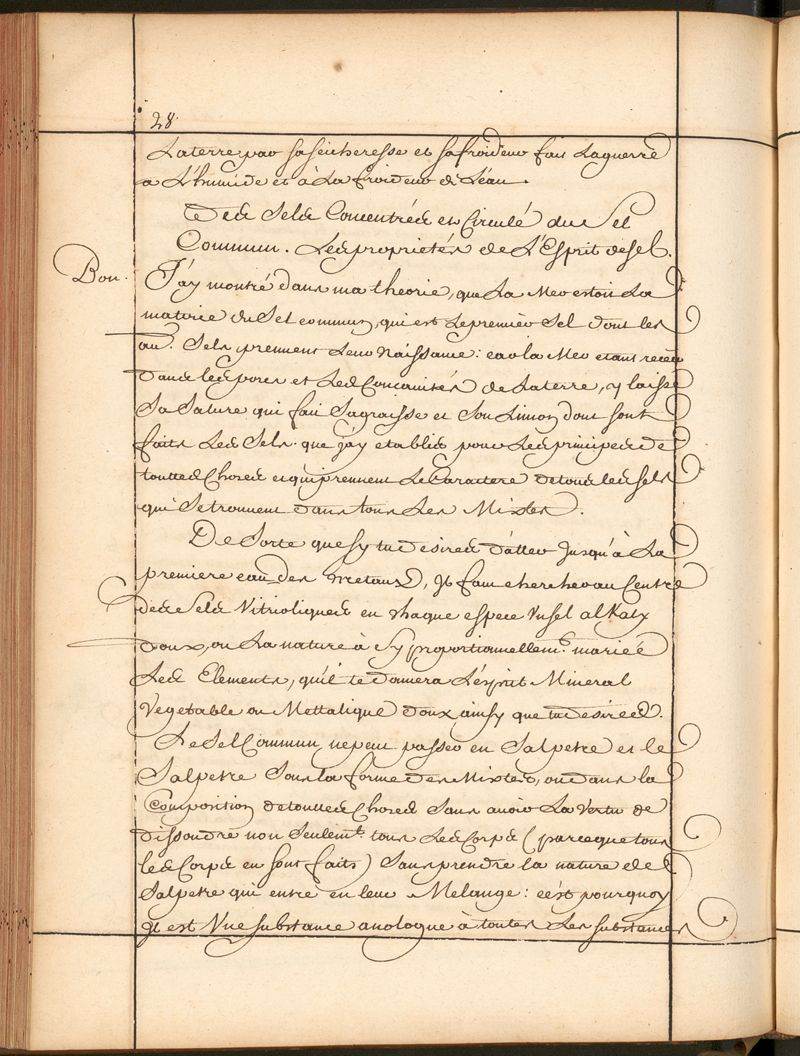 28.
La terre par sa seicheresse et sa froideur fait la guerre
a L'humide et à La froideur de L'eau.
des Sels Concentrées et Circulé du Sel
Commun. Les proprietés de L'Esprit de sel.
Bon.
J'ay montré dans ma theorie, que La Mer estoit La
matiere du Sel commun, qui est Le premier Sel dont les
au. Sels prennent Leur Naissance: car la Mer etant receu
dans les pores et Les Concavités de La terre, y laisse
Sa Salure qui fait Sa graisse et Son Limon dont sont
faits Les Sels que j'ay etablies pour Les principes de
touttes Choses et qui prennent Le Caractere de tous les sels
qui Se trouvent dans tous Les Mixtes.
De Sorte que sy tu desires d'aller Jusqu'à La
premiere eau des metaux, Jl faut chercher au Centre
des Sels Vitrioliques en chaque espece Un sel alKaly
doux, ou La nature à sy proportionnellemt. mariée
Les Elements, qu'il te donnera L'esprit Mineral
Vegetable ou Mettalique doux ainsy que tu desires.
Le Sel Commun ne peut passer en Salpetre et le
Salpetre Sous la forme des Mixtes, ou dans la
Composition de touttes Choses Sans avoir La Vertu de
dissoudre non Seulemt. tous Les Corps (parce que tous
les Corps en sont faits) Sans prendre la nature de
Salpetre qui entre en leur Melange: c'est pourquoy
Jl est Une substance anologue à toutes Les substances